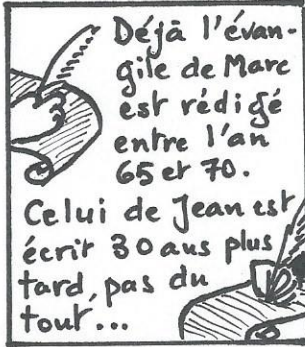 Déjà l'évan-
gile de Marc
est rédigé
entre l'an
65 et 70.
Celui de Jean est
écrit 30 ans plus
tard, pas du
tout...